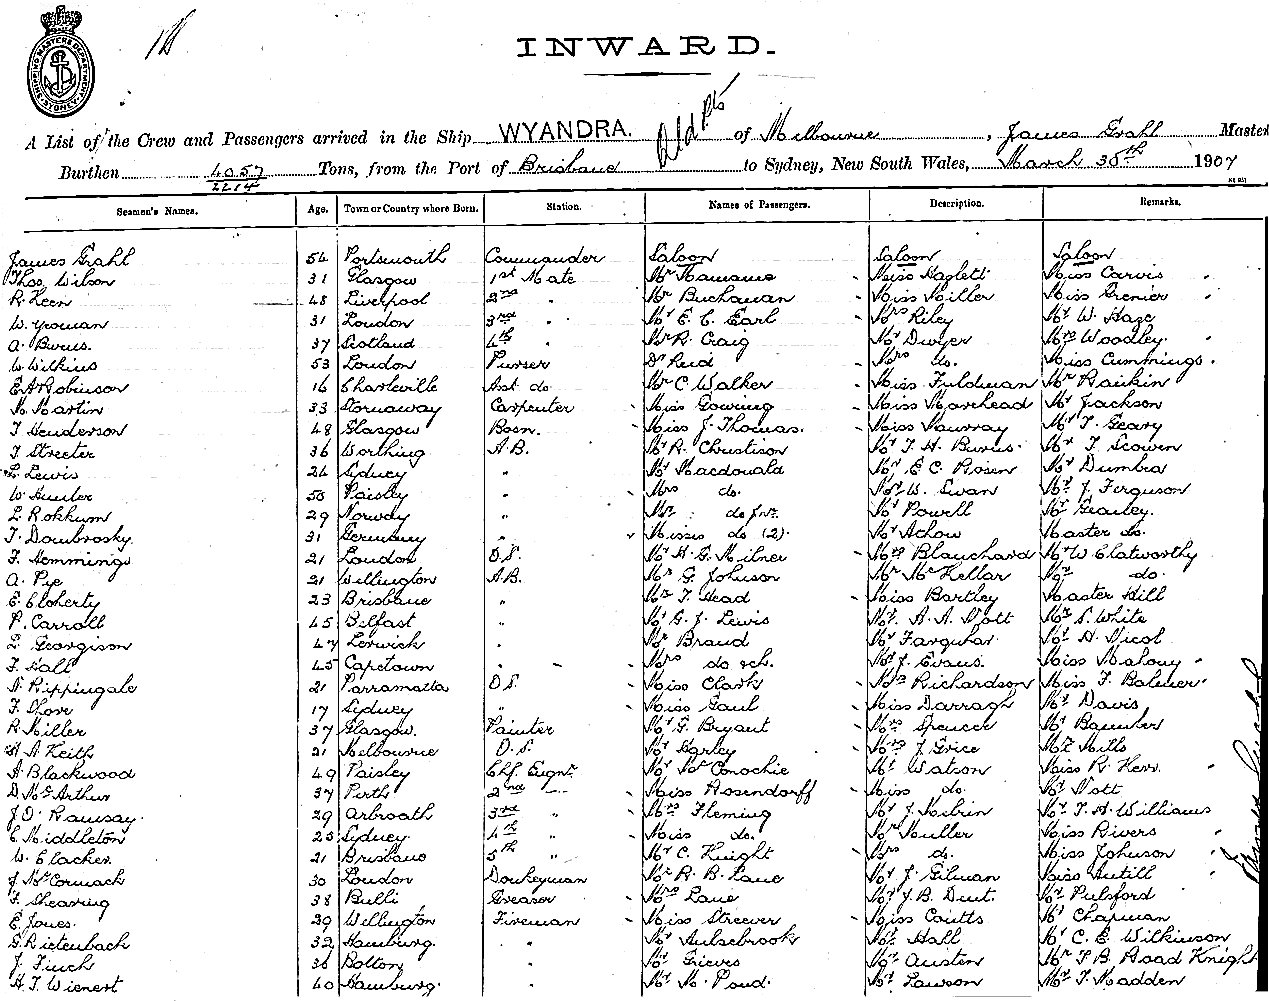 INWARD.
A List of the Crew and Passengers arrived in the Ship WYANDRA. of Melbourne, James Grahl Master
Burthen 4057 Tons, from the Port of Brisbane to Sydney, New South Wales, March 30th 1907
2214
Seamen's Names. Age. Town or Country where Born. Station. Names of Passengers. Description. Remarks.
James Grahl 54 Portsmouth Commander Saloon Saloon Saloon
Thos Wilson 31 Glasgow 1st Mate Miss
R. Keen 48 Liverpool 2nd Mr Buchanan Miss Miller Miss Grenier
W. Yeoman 31 London 3rd Mr E. C. Earl Mrs Riley Mr W. Haze
A. Burns. 37 Scotland 4th Mr R. Craig Mr Dwyer Mrs Woodley.
W Wilkins 53 London Purser Dr Reid Mrs do. Miss Cummings.
E A Robinson 16 Charleville Asst do Mr C Walker Miss Fuldman Mr Rankin
M. Martin 33 Stornaway Carpenter Miss Gowing Miss Marhead Mr Jackson
J Henderson 48 Glasgow Bosn. Miss J. Thomas. Miss Murray Mr T. Geary
J Streeter 36 Worthing A.B. Mr R. Christison Mr J. H. Burns. Mr T Scowen
L. Lewis 24 Sydney " Mr Macdonald Mr E C Rosen Mr Dumbra
W Hunter 50 Paisley " Mrs do. Mr W. Swan Mr J. Ferguson
L. Rokkum 29 Norway " Mr do jnr. Mr Powell
J. Dombrosky. 31 Germany " Misses do (2). Mr Achow Master do.
F. Hemmings 21 London O.S. Mr H. G. Milner Mrs Blanchard Mr W Clatworthy
A. Pye 21 Wellington A.B. Mr G. Johnson Mr McKellar Mrs do.
E. Cloherty 23 Brisbane " Mr T Head Miss Bartley Master Hill
P. Carroll 45 Belfast " Mr G. J. Lewis Mr A. A. Nott Mr S. White
L. Georgison 47 Lerwick " Mr Braud Mr Farquhar. Mr H. Nicol
J. Hall 45 Capetown " Mrs do & ch. Mr J. Evans. Miss Mahony
N. Rippingale 21 Parramatta O.S. Miss Clark Mrs Richardson Miss F. Balmer
F. Shore 17 Sydney " Miss Gaul Miss Darragh Mr Davis
R. Miller 37 Glasgow. Painter Mr G. Bryant Mrs Spencer Mr
H. A. Keith 21 Melbourne O.S. Mr Harley Mrs J. Grice Mr Mills
A Blackwood 49 Paisley Chf. Engnr. Mr McConochie Mr Watson Miss R. Kerr.
D. McArthur 37 Perth 2nd " Miss Rosendorff Miss do. Mr Nott
J. D. Ramsay. 29 Arbroath 3rd " Mrs Fleming Mr J. Mr T. H. Williams
C. Middleton 25 Sydney 4th " Miss do. Mr Muller Miss Rivers
W. Clacher. 21 Brisbane 5th " Mr C. Knight Mrs do. Miss Johnson
J McCormack 30 London Donkeyman Mr R. B. Lane Mr J. Gilman Miss Antill
F. Shearing 38 Bulli Greaser Mrs Lane Mr J. B. Dent. Mr Pulsford
E Jones. 29 Wellington Fireman Miss Streever Miss Coutts Mr Chapman
G. Rietenbach 32 Hamburg. " Mr Aulsebrook Mr Hall Mr C. E. Wilkinson
J. Finch 36 Bolton " Mr Grieves Mr Austen Mr T. B. Road Knight
H. T. Wienert 40 Hamburg. " Mr M. Poud. Mr Lawson Mr T. Madden